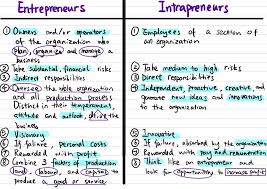 Entrepreneurs
① Owners and/or operators
of the organization who
plan, organize and manage a
business
② Take substantial, financial risks
③ Indirect responsibilities
④ Oversee the whole organization
and all production process
Distinct in their temperament,
attitude and outlook, drive the
business
⑤ Visionary
⑥ If failure, personal costs
⑦ Rewarded with profit
⑧ Combine factors of production
land, labour, and capital to
produce a good or service.
Intrapreneurs
① Employees of a section of
an organization
② Take medium to high risks
③ Direct responsibilities
④ Independent, proactive, creative, and
promote new ideas and innovations
to the organization
⑤ Innovative
⑥ If failure, absorbed by the organization
⑦ Rewarded with pay and remuneration
⑧ Think like an entrepreneur and
look for opportunities to increase profit